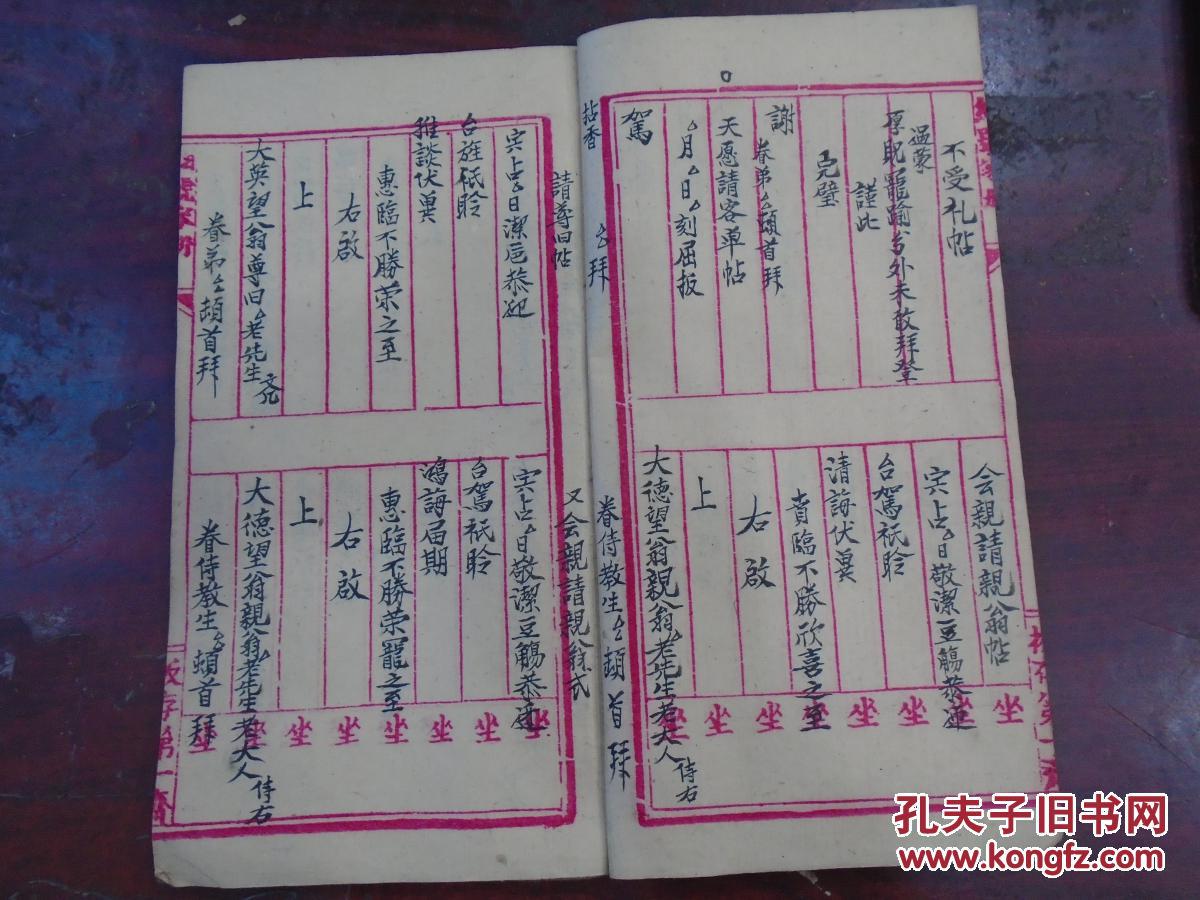 不受礼帖
温蒙
厚貺寵踰分外未敢拜登
謹此
完璧
謝
眷弟厶頓首拜
天愿請客单帖
厶月厶日厶刻屈扳
駕
拈香
厶拜
会親請親翁帖
宍占厶日敬潔豆觴恭迓
台駕祇聆
清誨伏冀
賁臨不勝欣喜之至
右啟
上
大德望翁親翁厶老先生老大人
侍右
眷侍教生厶頓首拜
請尊旧帖
宍占厶日潔卮恭迎
台旌祇聆
雅談伏冀
惠臨不勝荣之至
右啟
上
大英望翁尊旧厶老先生
文几
眷弟厶頓首拜
又会親請親翁式
宍占厶日敬潔豆觴恭迓
台駕祇聆
鴻誨届期
惠臨不勝荣寵之至
右啟
上
大德望翁親翁厶老先生老大人
侍右
眷侍教生厶頓首拜
坐 坐 坐 坐 坐 坐 坐
坐 坐 坐 坐 坐 坐 坐
板存第一斋
孔夫子旧书网
www.kongfz.com